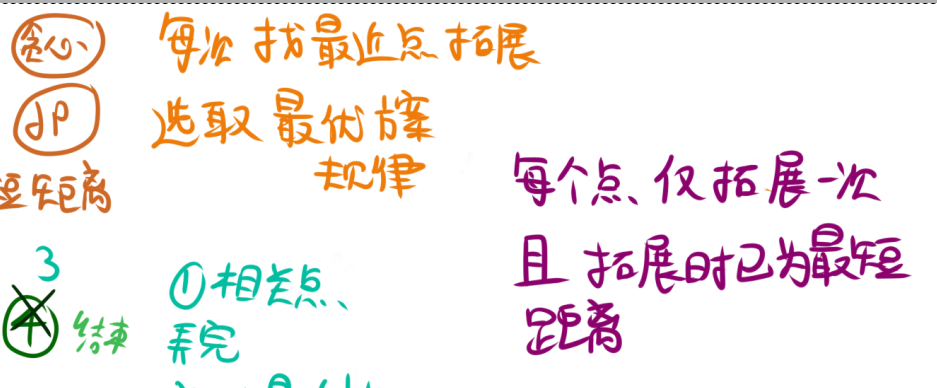 贪心
每次找最近点拓展
dp
选取最优方案
规律
短距离
每个点、仅拓展一次
且拓展时已为最短
距离
3
4
结束
①相关点、
弄完